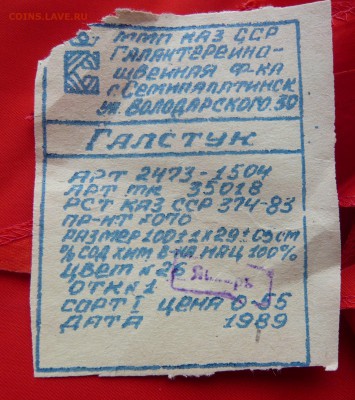 COINS.LAVE.RU
ММП КАЗ ССР
ГАЛАНТЕРЕЙНО-
ШВЕЙНАЯ Ф-КА
г. СЕМИПАЛАТИНСК
ул. ВОЛОДАРСКОГО 30
ГАЛСТУК
АРТ 2473-1504
АРТ ТК 35018
РСТ КАЗ ССР 374-83
РАЗМЕР 100±1×29±05 СМ
% СОД ХИМ В-НА НАЦ 100%
ЦВЕТ К 26
ОТК № 1
Январь
СОРТ I ЦЕНА 0-55
ДАТА 1989